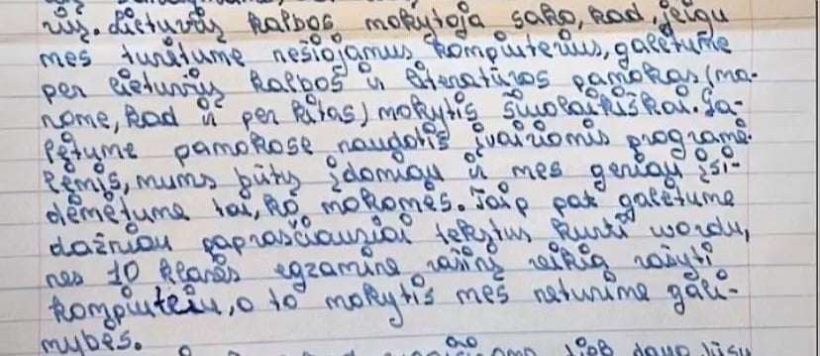 vių. Lietuvių kalbos mokytoja sako, kad, jeigu
mes turėtume nešiojamus kompiuterius, galėtume
per lietuvių kalbos ir literatūros pamokas (ma-
nome, kad ir per kitas) mokytis šiuolaikiškai. Ga-
lėtume pamokose naudotis įvairiomis programė-
lėmis, mums būtų įdomiau ir mes geriau įsi-
dėmėtume tai, ko mokomės. Taip pat galėtume
dažniau paprasčiausiai tekstus kurti wordu,
nes 10 klasės egzamine rašinį reikia rašyti
kompiuteriu, o to mokytis mes neturime gali-
mybės.